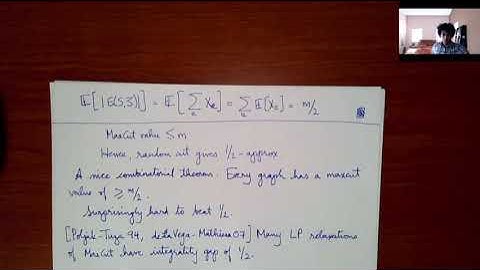 𝔼[|E(S,S̄)|] = 𝔼[∑ₑ Xₑ] = ∑ₑ 𝔼[Xₑ] = m/2
MaxCut value ≤ m
Hence, random cut gives 1/2-approx
A nice combinatorial theorem: Every graph has a maxcut
value of ≥ m/2.
Surprisingly hard to beat 1/2.
[Poljak-Tuza 94, de la Vega-Mathieu 07] Many LP relaxations
of MaxCut have integrality gap of 1/2.